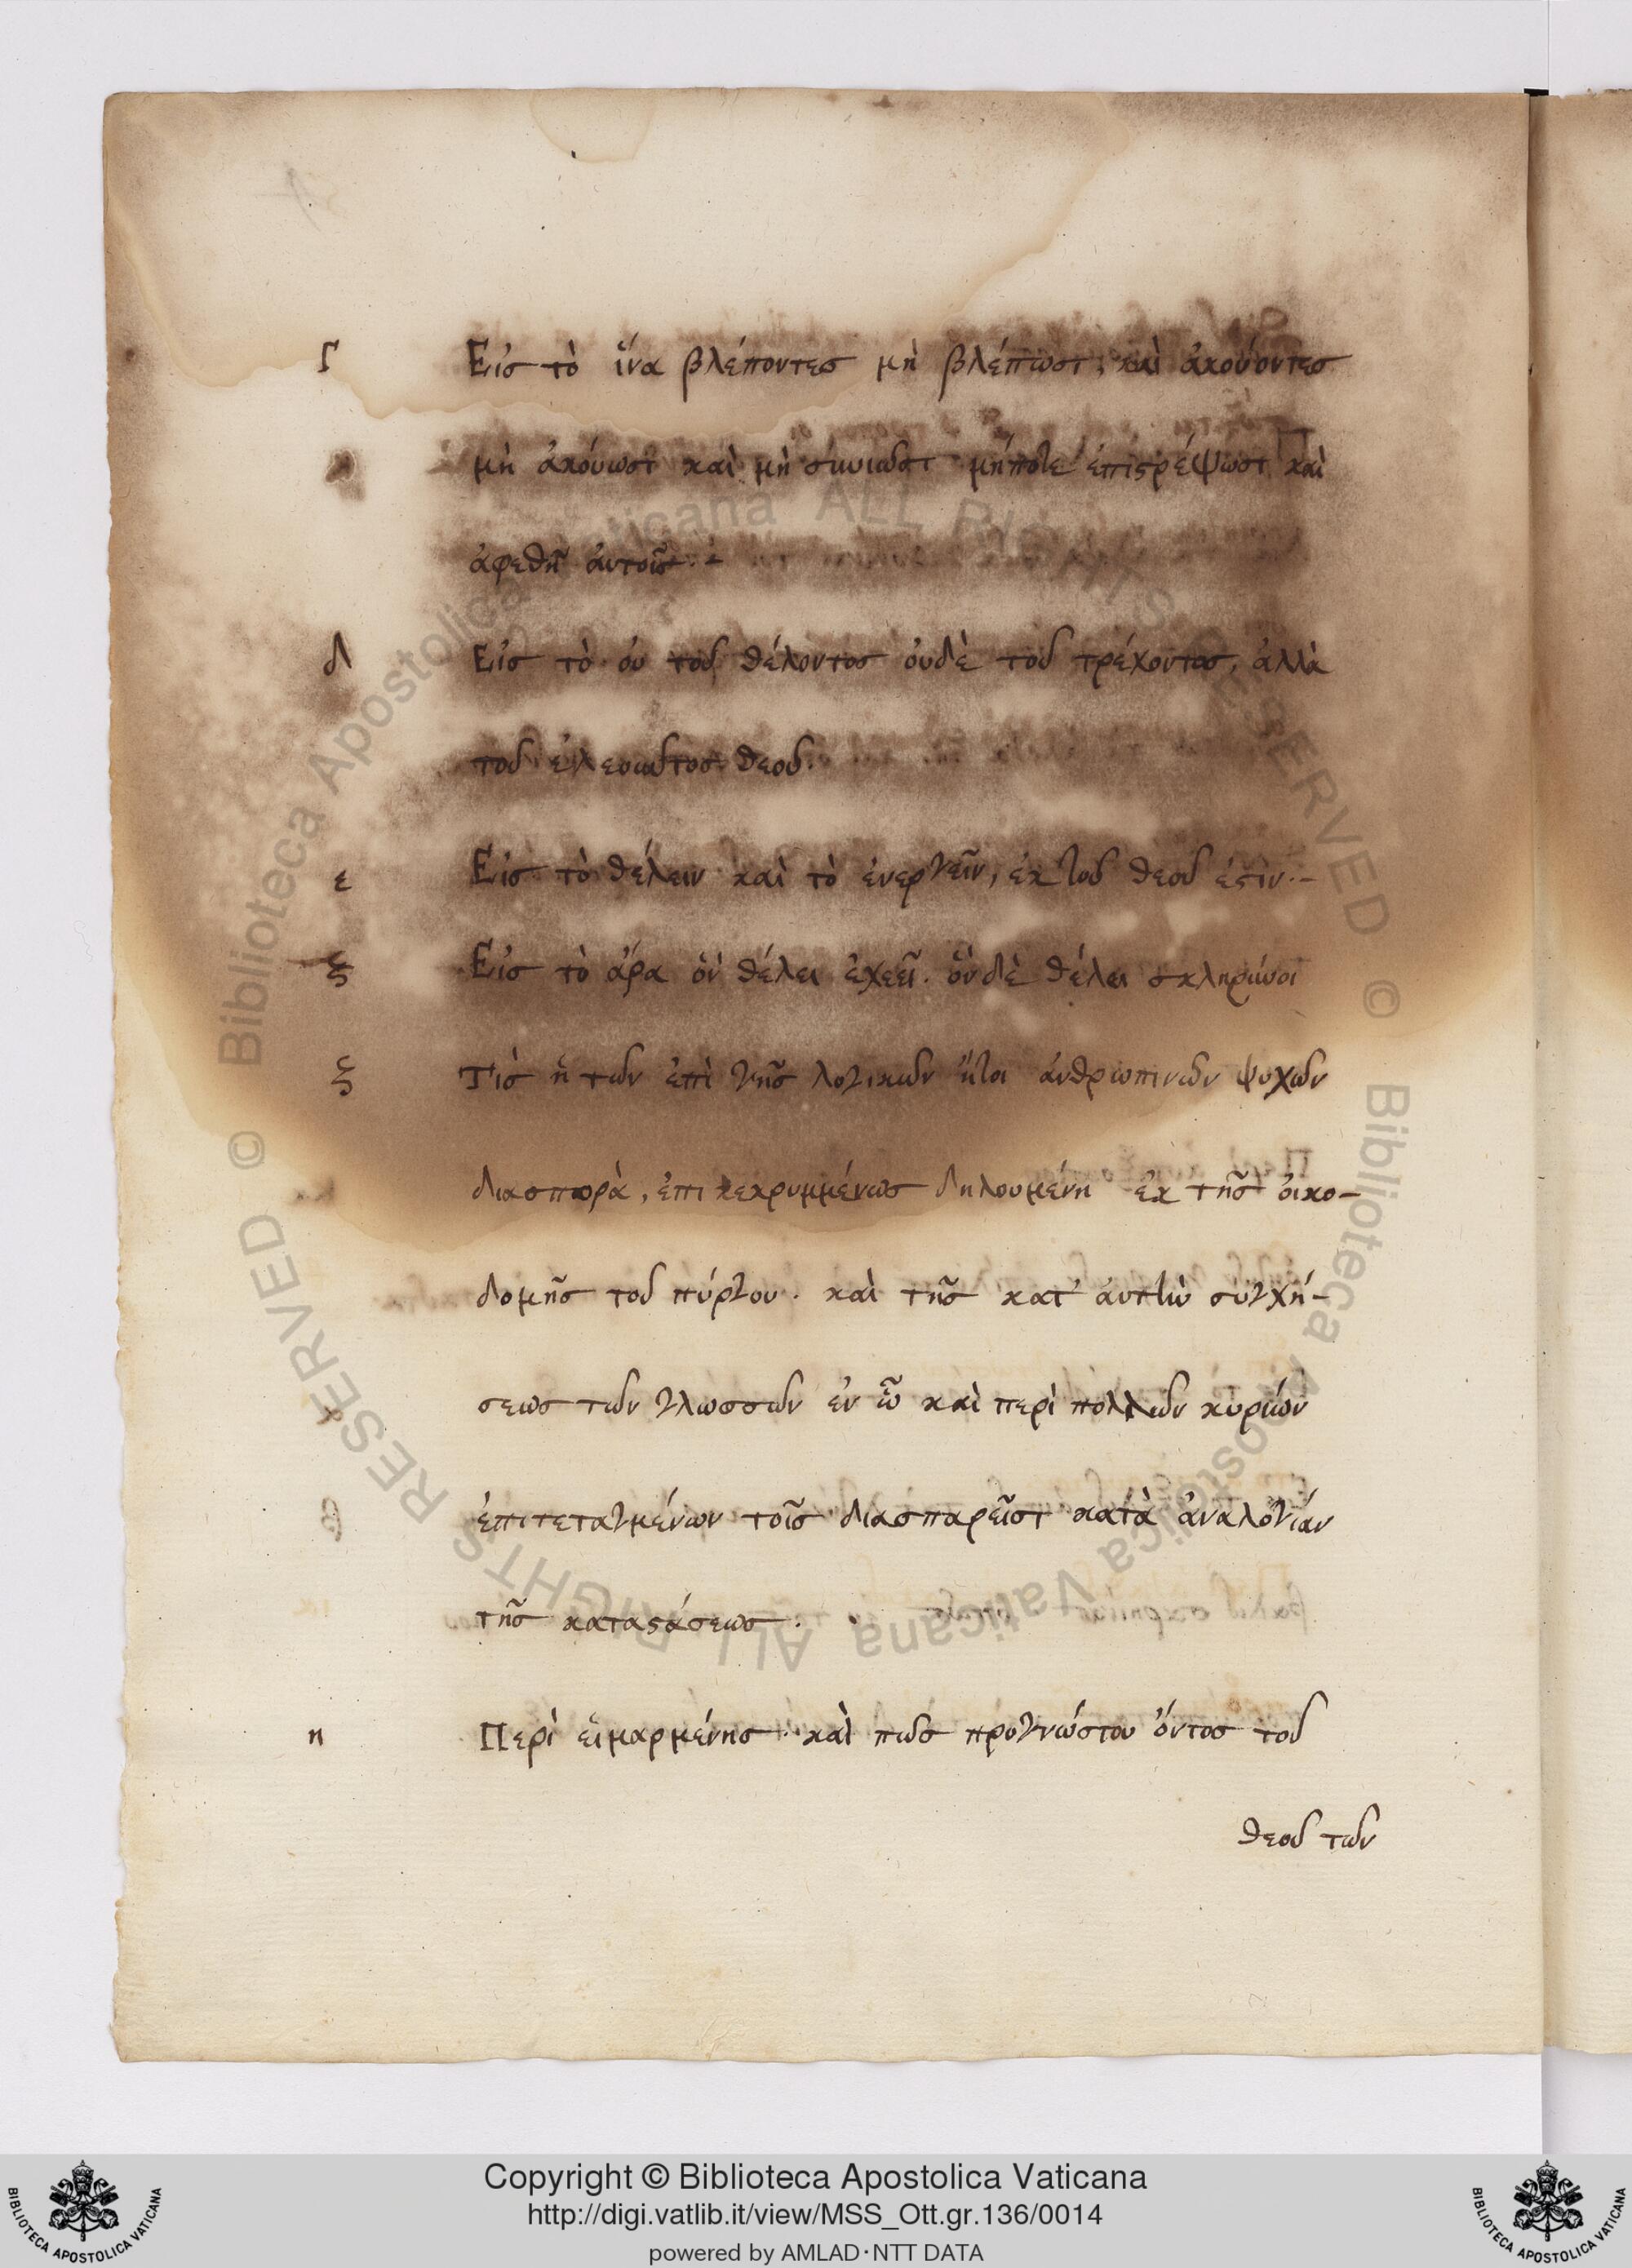 Γ Εἰσ τὸ ἵνα βλέποντεσ μὴ βλέπωσι, καὶ ἀκούοντεσ
μὴ ἀκούωσι καὶ μὴ συνιῶσι μήποτε ἐπιςρέψωσι καὶ
ἀφεθῆ ἀυτοῖσ :-
δ Εἰσ τὸ ὀυ τοῦ θέλοντοσ ὀυδὲ τοῦ τρέχοντοσ, ἀλλὰ
τοῦ ἐλεοῦντοσ θεοῦ.
ε Εἰσ τὸ θέλειν καὶ τὸ ἐνεργεῖν, ἐκ τοῦ θεοῦ ἐςὶν.-
Εἰσ τὸ ἄρα ὃν θέλει ἐλεεῖ. ὃν δὲ θέλει σκληρύνει
Τίσ ἡ τῶν ἐπὶ γῆσ λογικῶν ἤτοι ἀνθρωπινῶν ψυχῶν
διασπορὰ, ἐπικεκρυμμένωσ δηλουμένη ἐκ τῆσ ὀικο-
δομῆσ τοῦ πύργου. καὶ τῆσ κατ' ἀυτὴν συγχύ-
σεωσ τῶν γλωσσῶν ἐν ὧ καὶ περὶ πολλῶν κυρίων
ἐπιτεταγμένων τοῖσ διασπαρεῖσι κατὰ ἀναλογίαν
τῆσ καταςάσεωσ.
η Περὶ εἱμαρμένησ. καὶ πῶσ προγνώστου ὄντοσ τοῦ
θεοῦ τῶν
Copyright © Biblioteca Apostolica Vaticana
http://digi.vatlib.it/view/MSS_Ott.gr.136/0014
powered by AMLAD·NTT DATA
BIBLIOTECA APOSTOLICA VATICANA
BIBLIOTECA APOSTOLICA VATICANA
© Biblioteca Apostolica Vaticana ALL RIGHTS RESERVED
© Biblioteca Apostolica Vaticana ALL RIGHTS RESERVED